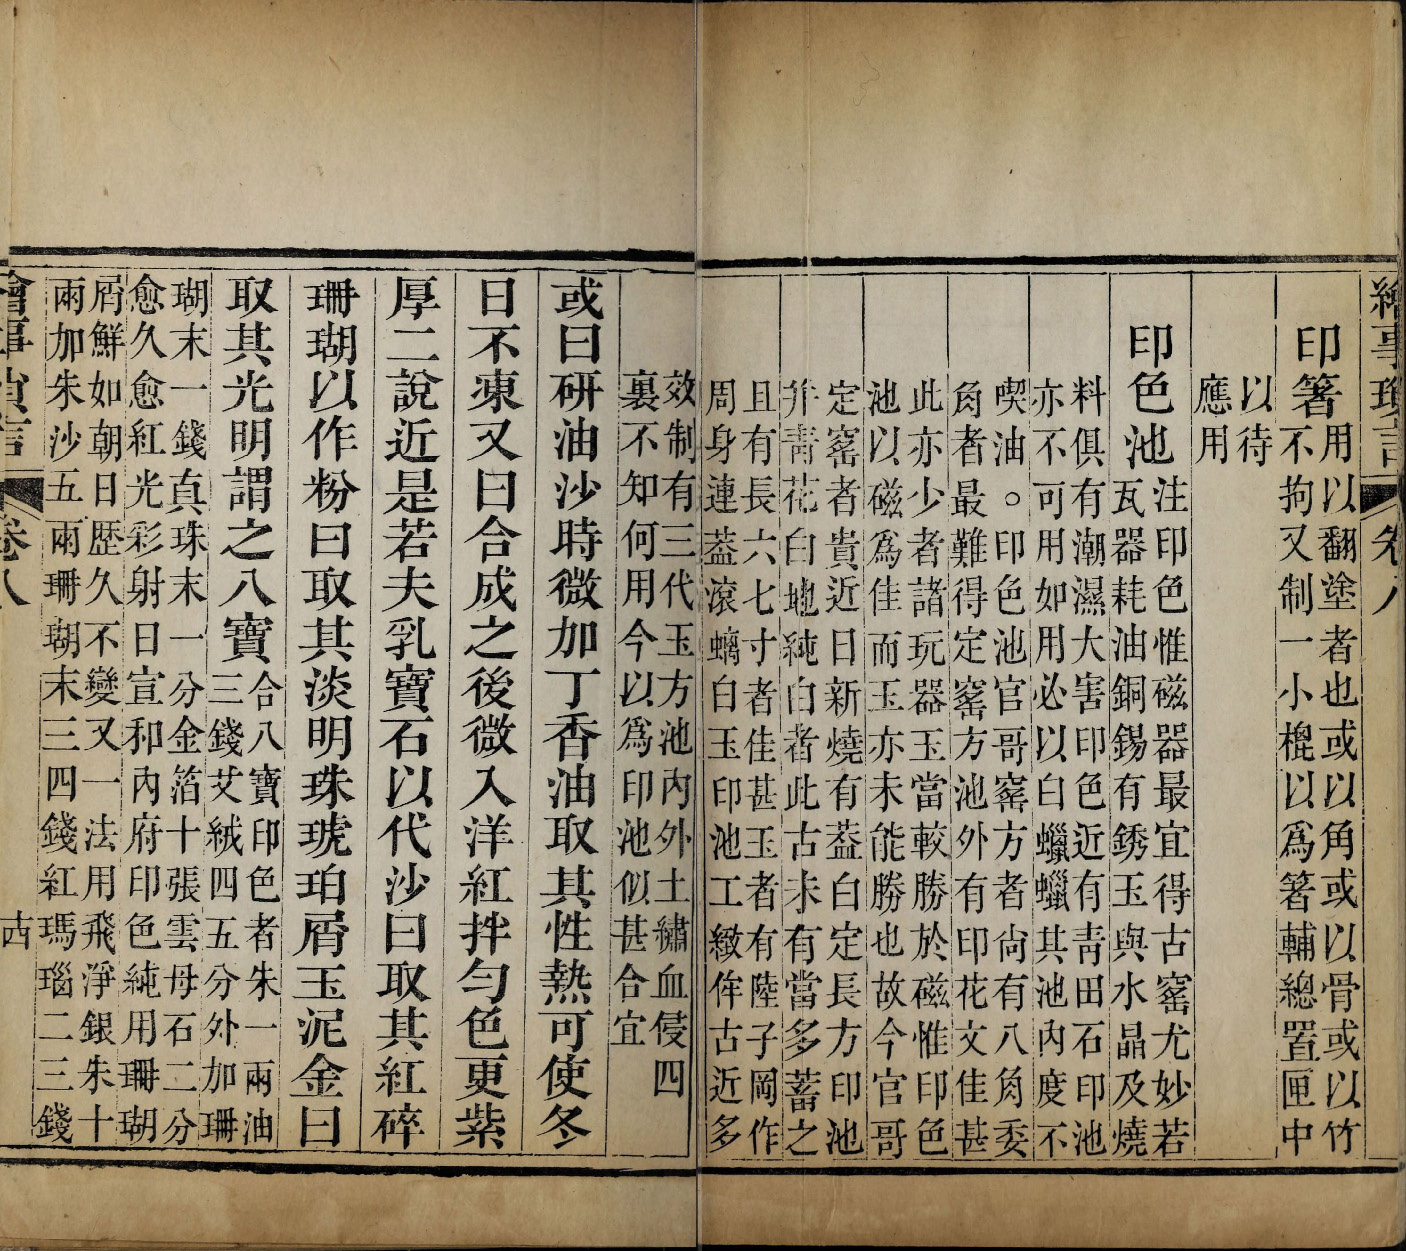 繪事瑣言 卷八
印箸
用以翻塗者也或以角或以骨或以竹
不拘又制一小棍以爲箸輔總置匣中
以待
應用
印色池
注印色惟磁器最宜得古窰尤妙若
瓦器耗油銅錫有銹玉與水晶及燒
料俱有潮濕大害印色近有靑田石印池
亦不可用如用必以白蠟蠟其池內度不
喫油。印色池官哥窰方者尙有八角委
角者最難得定窰方池外有印花文佳甚
此亦少者諸玩器玉當較勝於磁惟印色
池以磁爲佳而玉亦未能勝也故今官哥
定窰者貴近日新燒有葢白定長方印池
幷靑花白地純白者此古未有當多蓄之
且有長六七寸者佳甚玉者有陸子岡作
周身連葢滾螭白玉印池工緻侔古近多
效制有三代玉方池內外土繡血侵四
裏不知何用今以爲印池似甚合宜
或曰硏油沙時微加丁香油取其性熱可使冬
日不凍又曰合成之後微入洋紅拌勻色更紫
厚二說近是若夫乳寶石以代沙曰取其紅碎
珊瑚以作粉曰取其淡明珠琥珀屑玉泥金曰
取其光明謂之八寶
合八寶印色者朱一兩油
三錢艾絨四五分外加珊
瑚末一錢真珠末一分金箔十張雲母石二分
愈久愈紅光彩射日宣和內府印色純用珊瑚
屑鮮如朝日歷久不變又一法用飛淨銀朱十
兩加朱沙五兩珊瑚末三四錢紅瑪瑙二三錢
繪事瑣言 卷八 古